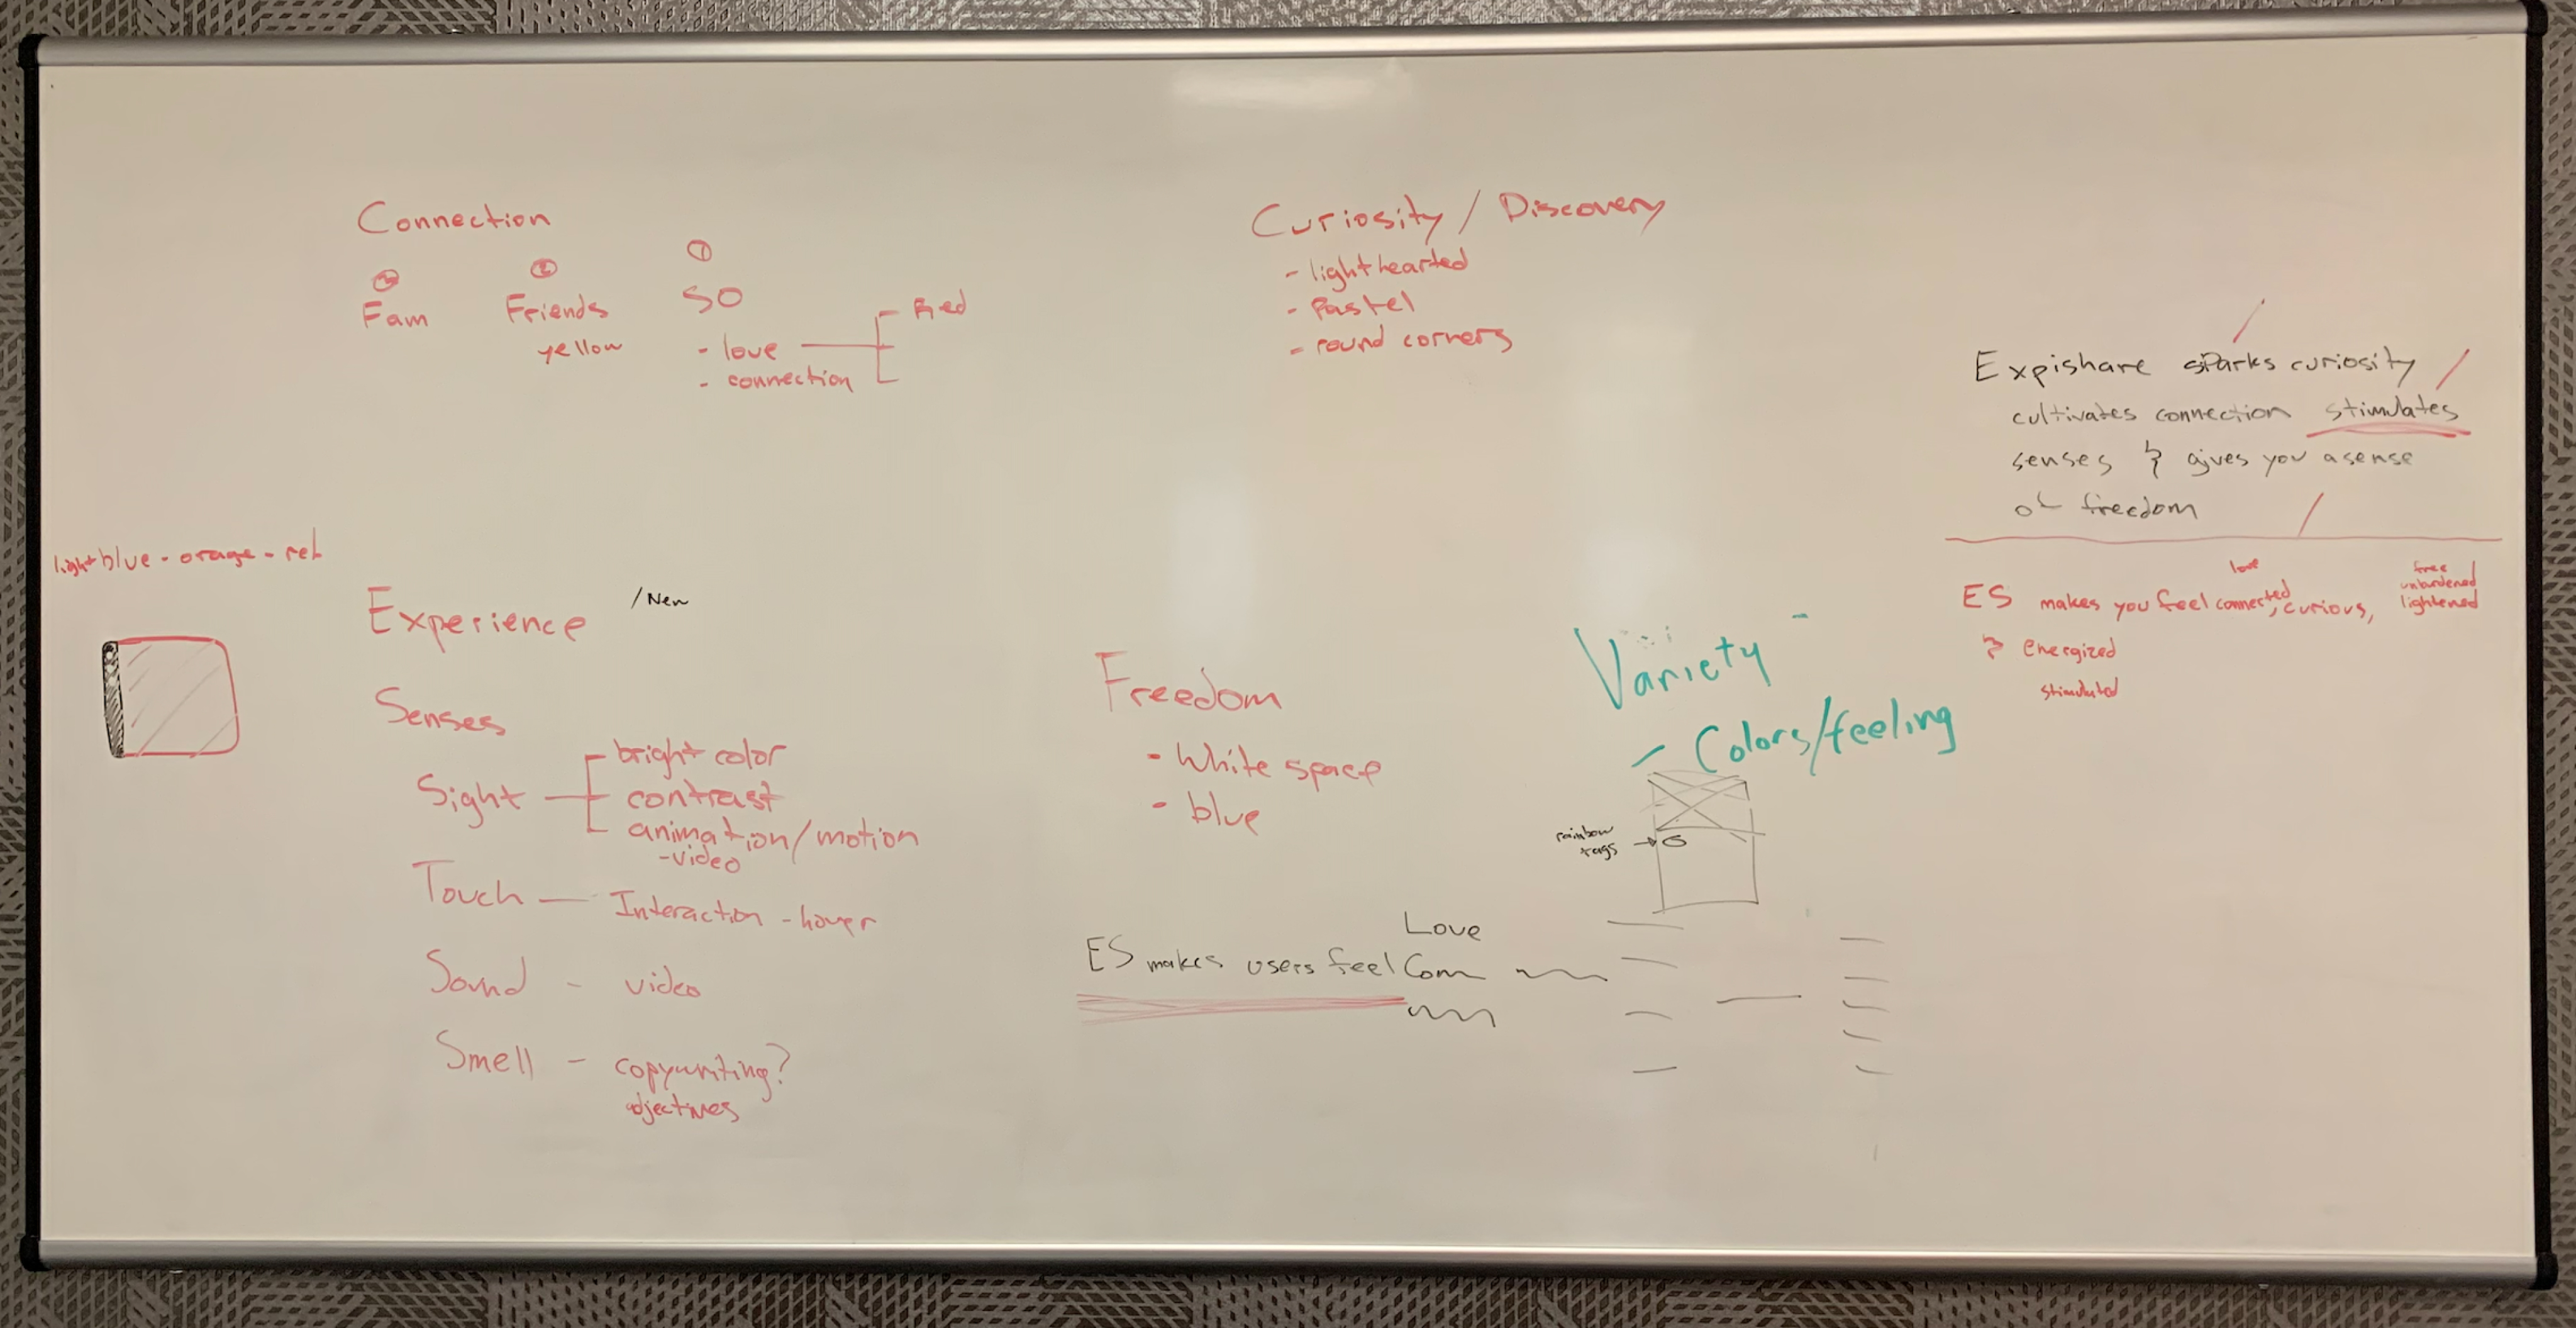 Connection
① 
② Friends
Fam
SO
yellow
- love
- connection
Red
Curiosity / Discovery
- lighthearted
- Pastel
- round corners
Expishare sparks curiosity
cultivates connection stimulates
senses & gives you a sense
of freedom
love
free
unburdened
lightened
ES makes you feel connected, curious,
& energized
stimulated
light blue - orage - red
Experience /New
Senses
Sight
bright color
contrast
animation/motion
-video
Touch — Interaction - hover
Sound - video
Smell - copywriting?
adjectives
Freedom
- White space
- blue
Variety
- Colors/feeling
rainbow
tags
Love
ES makes users feel Com